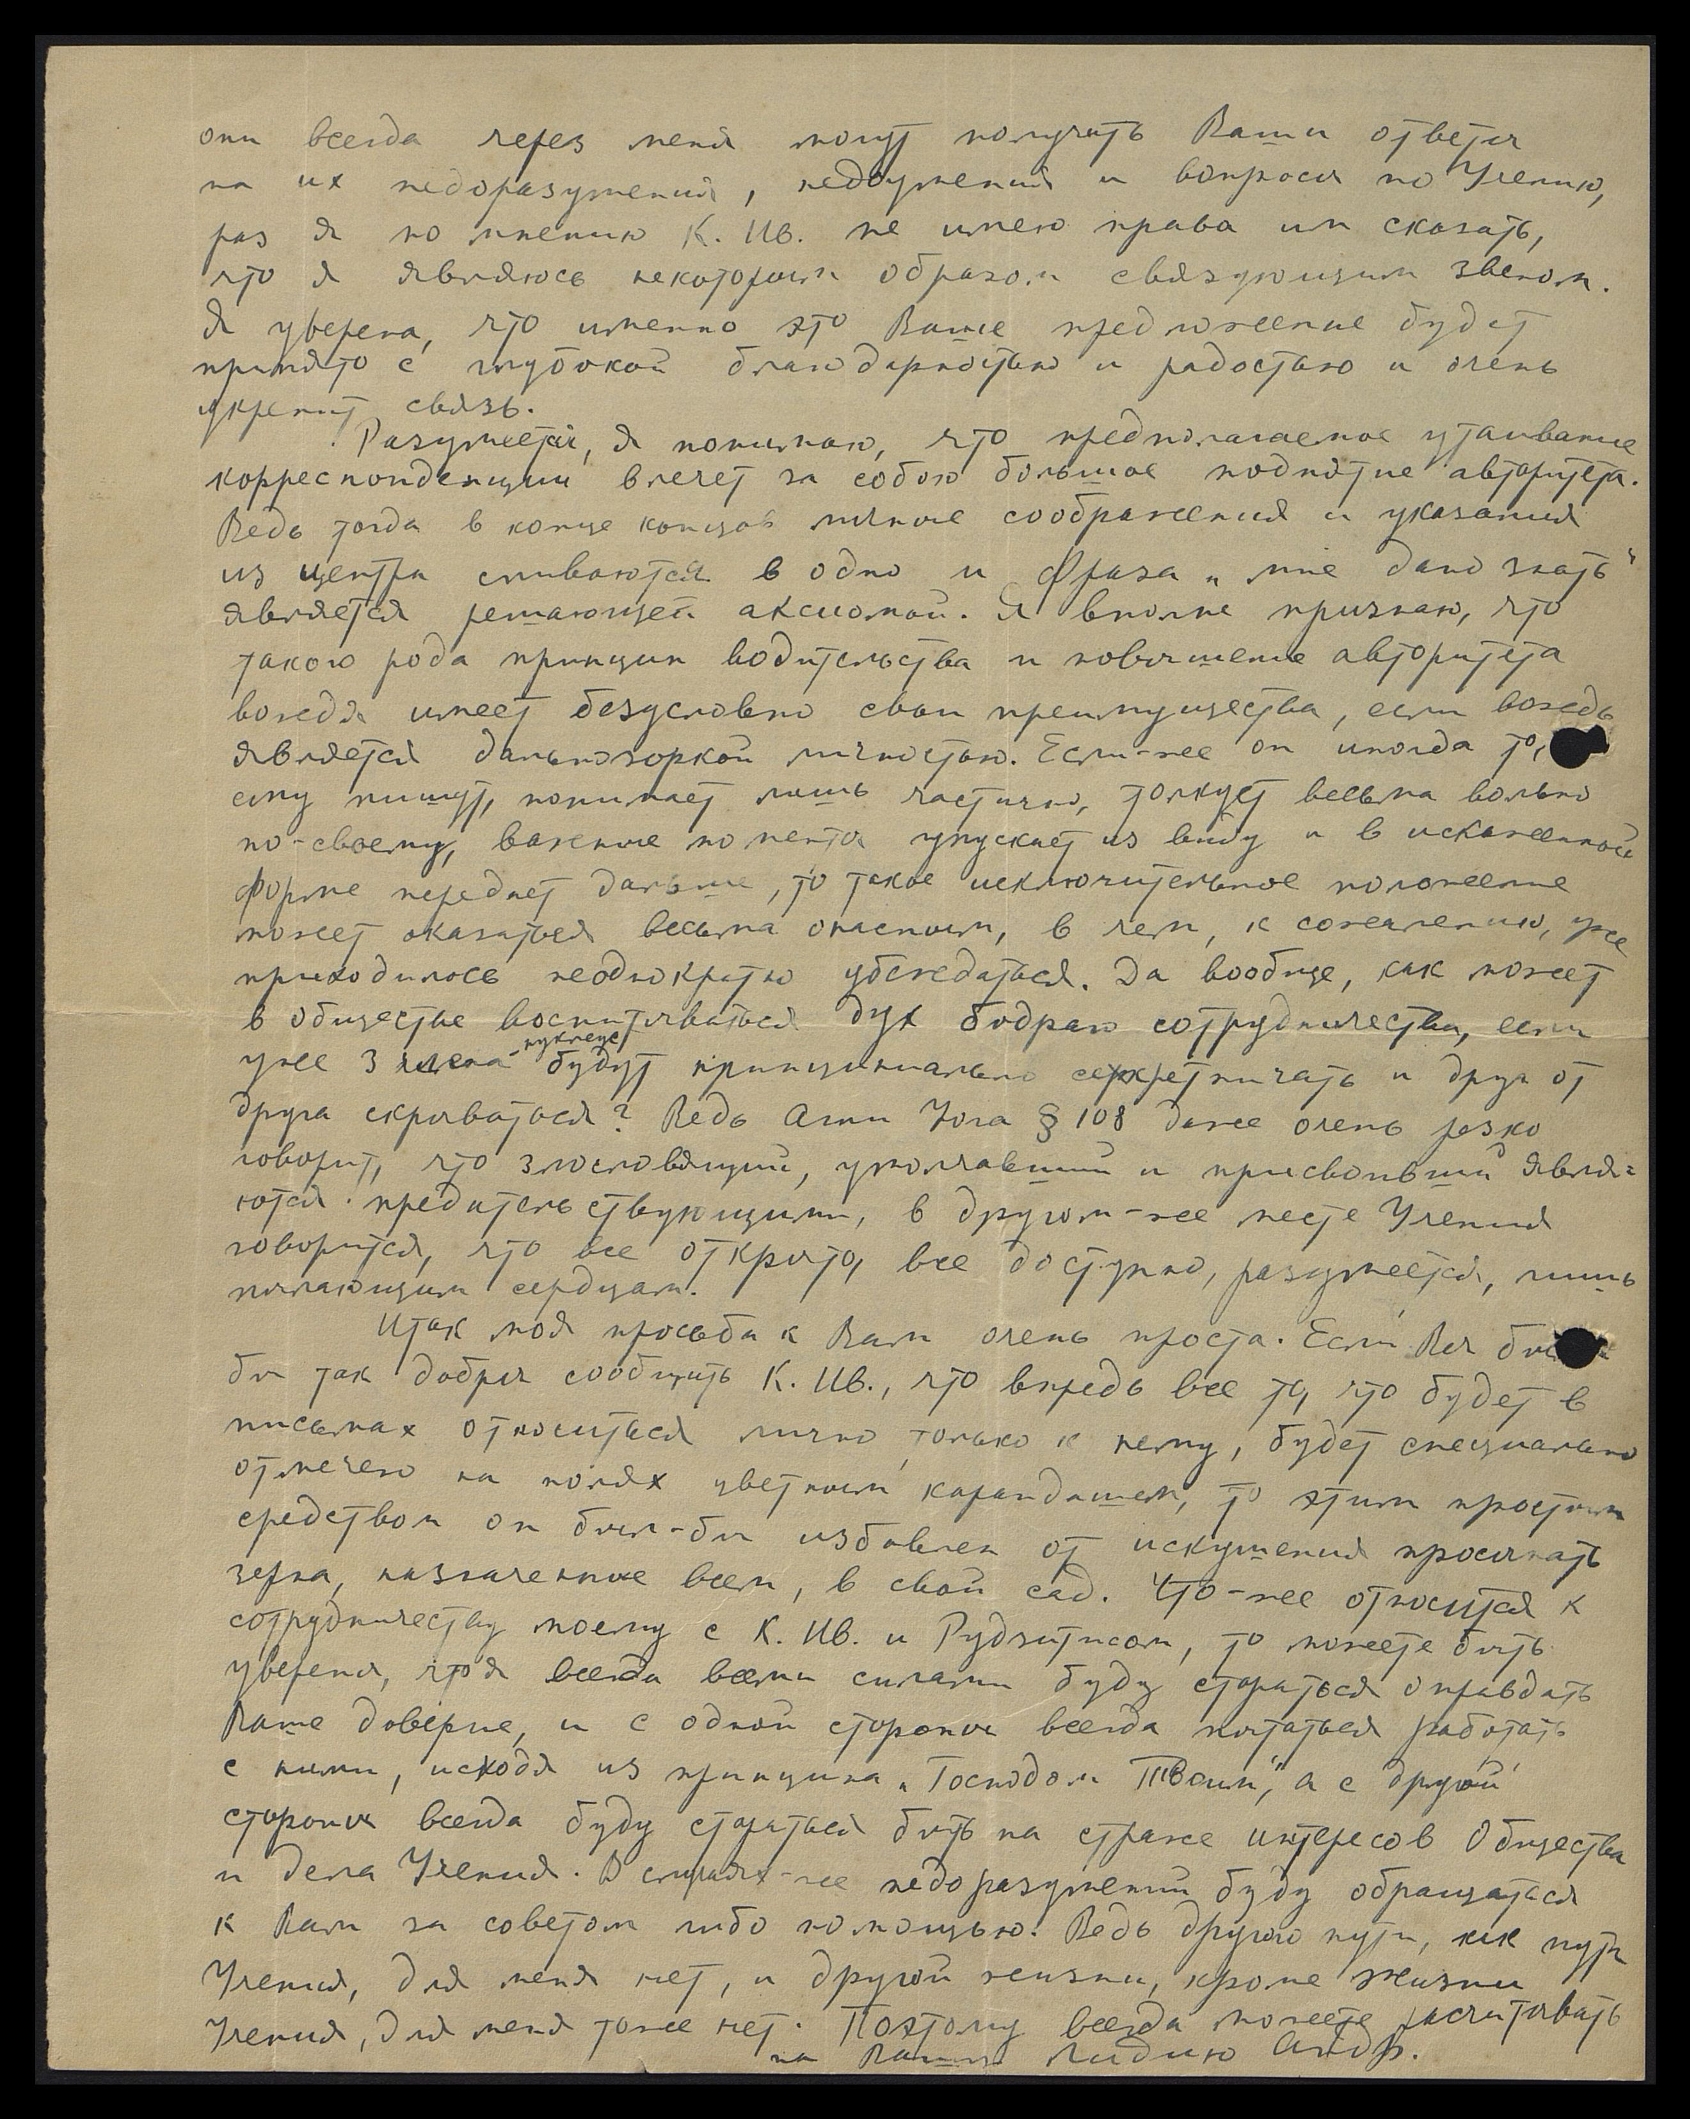 они всегда через меня могут получать Ваши ответы
на их недоразумения, недоумения и вопросы по Учению,
раз я по мнению К. Ив. не имею права им сказать,
что я являюсь некоторым образом связующим звеном.
Я уверена, что именно это Ваше предложение будет
принято с глубокой благодарностью и радостью и очень
укрепит связь.
Разумеется, я понимаю, что предполагаемое утаивание
корреспонденции влечет за собою большое поднятие авторитета.
Ведь тогда в конце концов личные соображения и указания
из центра сливаются в одно и фраза „мне дано знать“
является решающей аксиомой. Я вполне признаю, что
такого рода принцип водительства и повышение авторитета
вождя имеет безусловно свои преимущества, если вождь
является дальнозоркой личностью. Если-же он иногда то,
ему пишут, понимает лишь частично, толкует весьма вольно
по-своему, важные моменты упускает из виду и в искаженной
форме передает дальше, то такое исключительное положение
может оказаться весьма опасным, в чем, к сожалению, уже
приходилось неоднократно убеждаться. Да вообще, как может
в обществе воспитываться дух бодраго сотрудничества, если
уже 3 члена будут принципиально секретничать и друг от
друга скрываться? Ведь Агни Йога § 108 даже очень резко
говорит, что злословящий, умолчавший и присвоивший явля=
ются предательствующими, в другом-же месте Учения
говорится, что все открыто, все доступно, разумеется, лишь
пылающим сердцам.
Итак моя просьба к Вам очень проста. Если Вы
бы так добры сообщить К. Ив., что впредь все то, что будет в
письмах относиться лично, только к нему, будет специально
отмечено на полях цветным карандашем, то этим простым
средством он был-бы избавлен от искушения просыпать
зерна, назначенные всем, в свой сад. Что-же относится к
сотрудничеству моему с К. Ив. и Рудзитисом, то можете быть
уверены, что я всегда всеми силами буду стараться оправдать
Ваше доверие, и с одной стороны всегда пытаться работать
с ними, исходя из принципа „Господом Твоим“, а с другой
стороны всегда буду стараться быть на страже интересов Общества
и дела Учения. В случаях-же недоразумений буду обращаться
к Вам за советом либо помощью. Ведь другого пути, как пути
Учения, для меня нет, и другой жизни, кроме жизни
Учения, для меня тоже нет. Поэтому всегда можете расчитывать
на Вашу Лидию Андр.